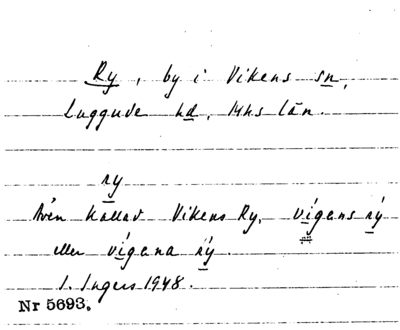 Ry, by i Vikens sn,
Luggude hd, Mhs län.
ry
Även kallad Vikens Ry, vígans rý
eller vígana rý.
I. Ingers 1948.
Nr 5693.